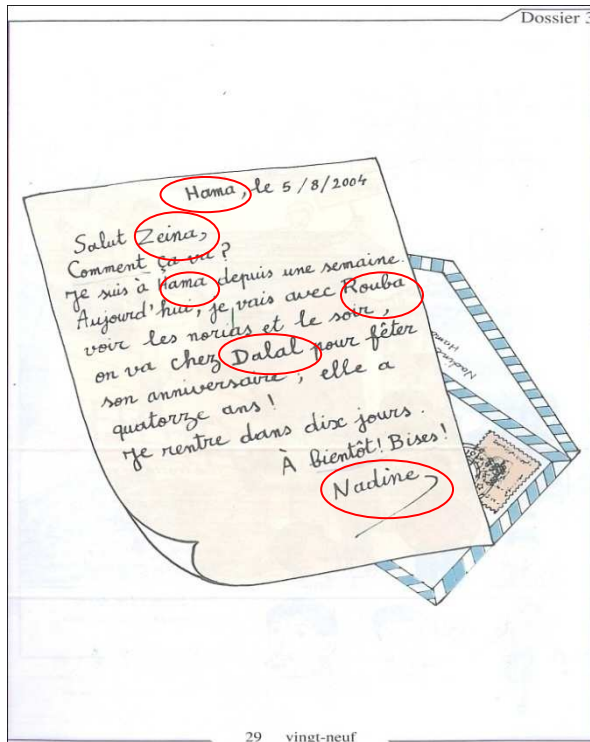 Dossier 3
Hama, le 5/8/2004
Salut Zeina,
Comment ça va ?
Je suis à Hama depuis une semaine.
Aujourd'hui, je vais avec Rouba
voir les norias et le soir,
on va chez Dalal pour fêter
son anniversaire, elle a
quatorze ans !
Je rentre dans dix jours.
À bientôt ! Bises !
Nadine
Nadine
Hama
29 vingt-neuf